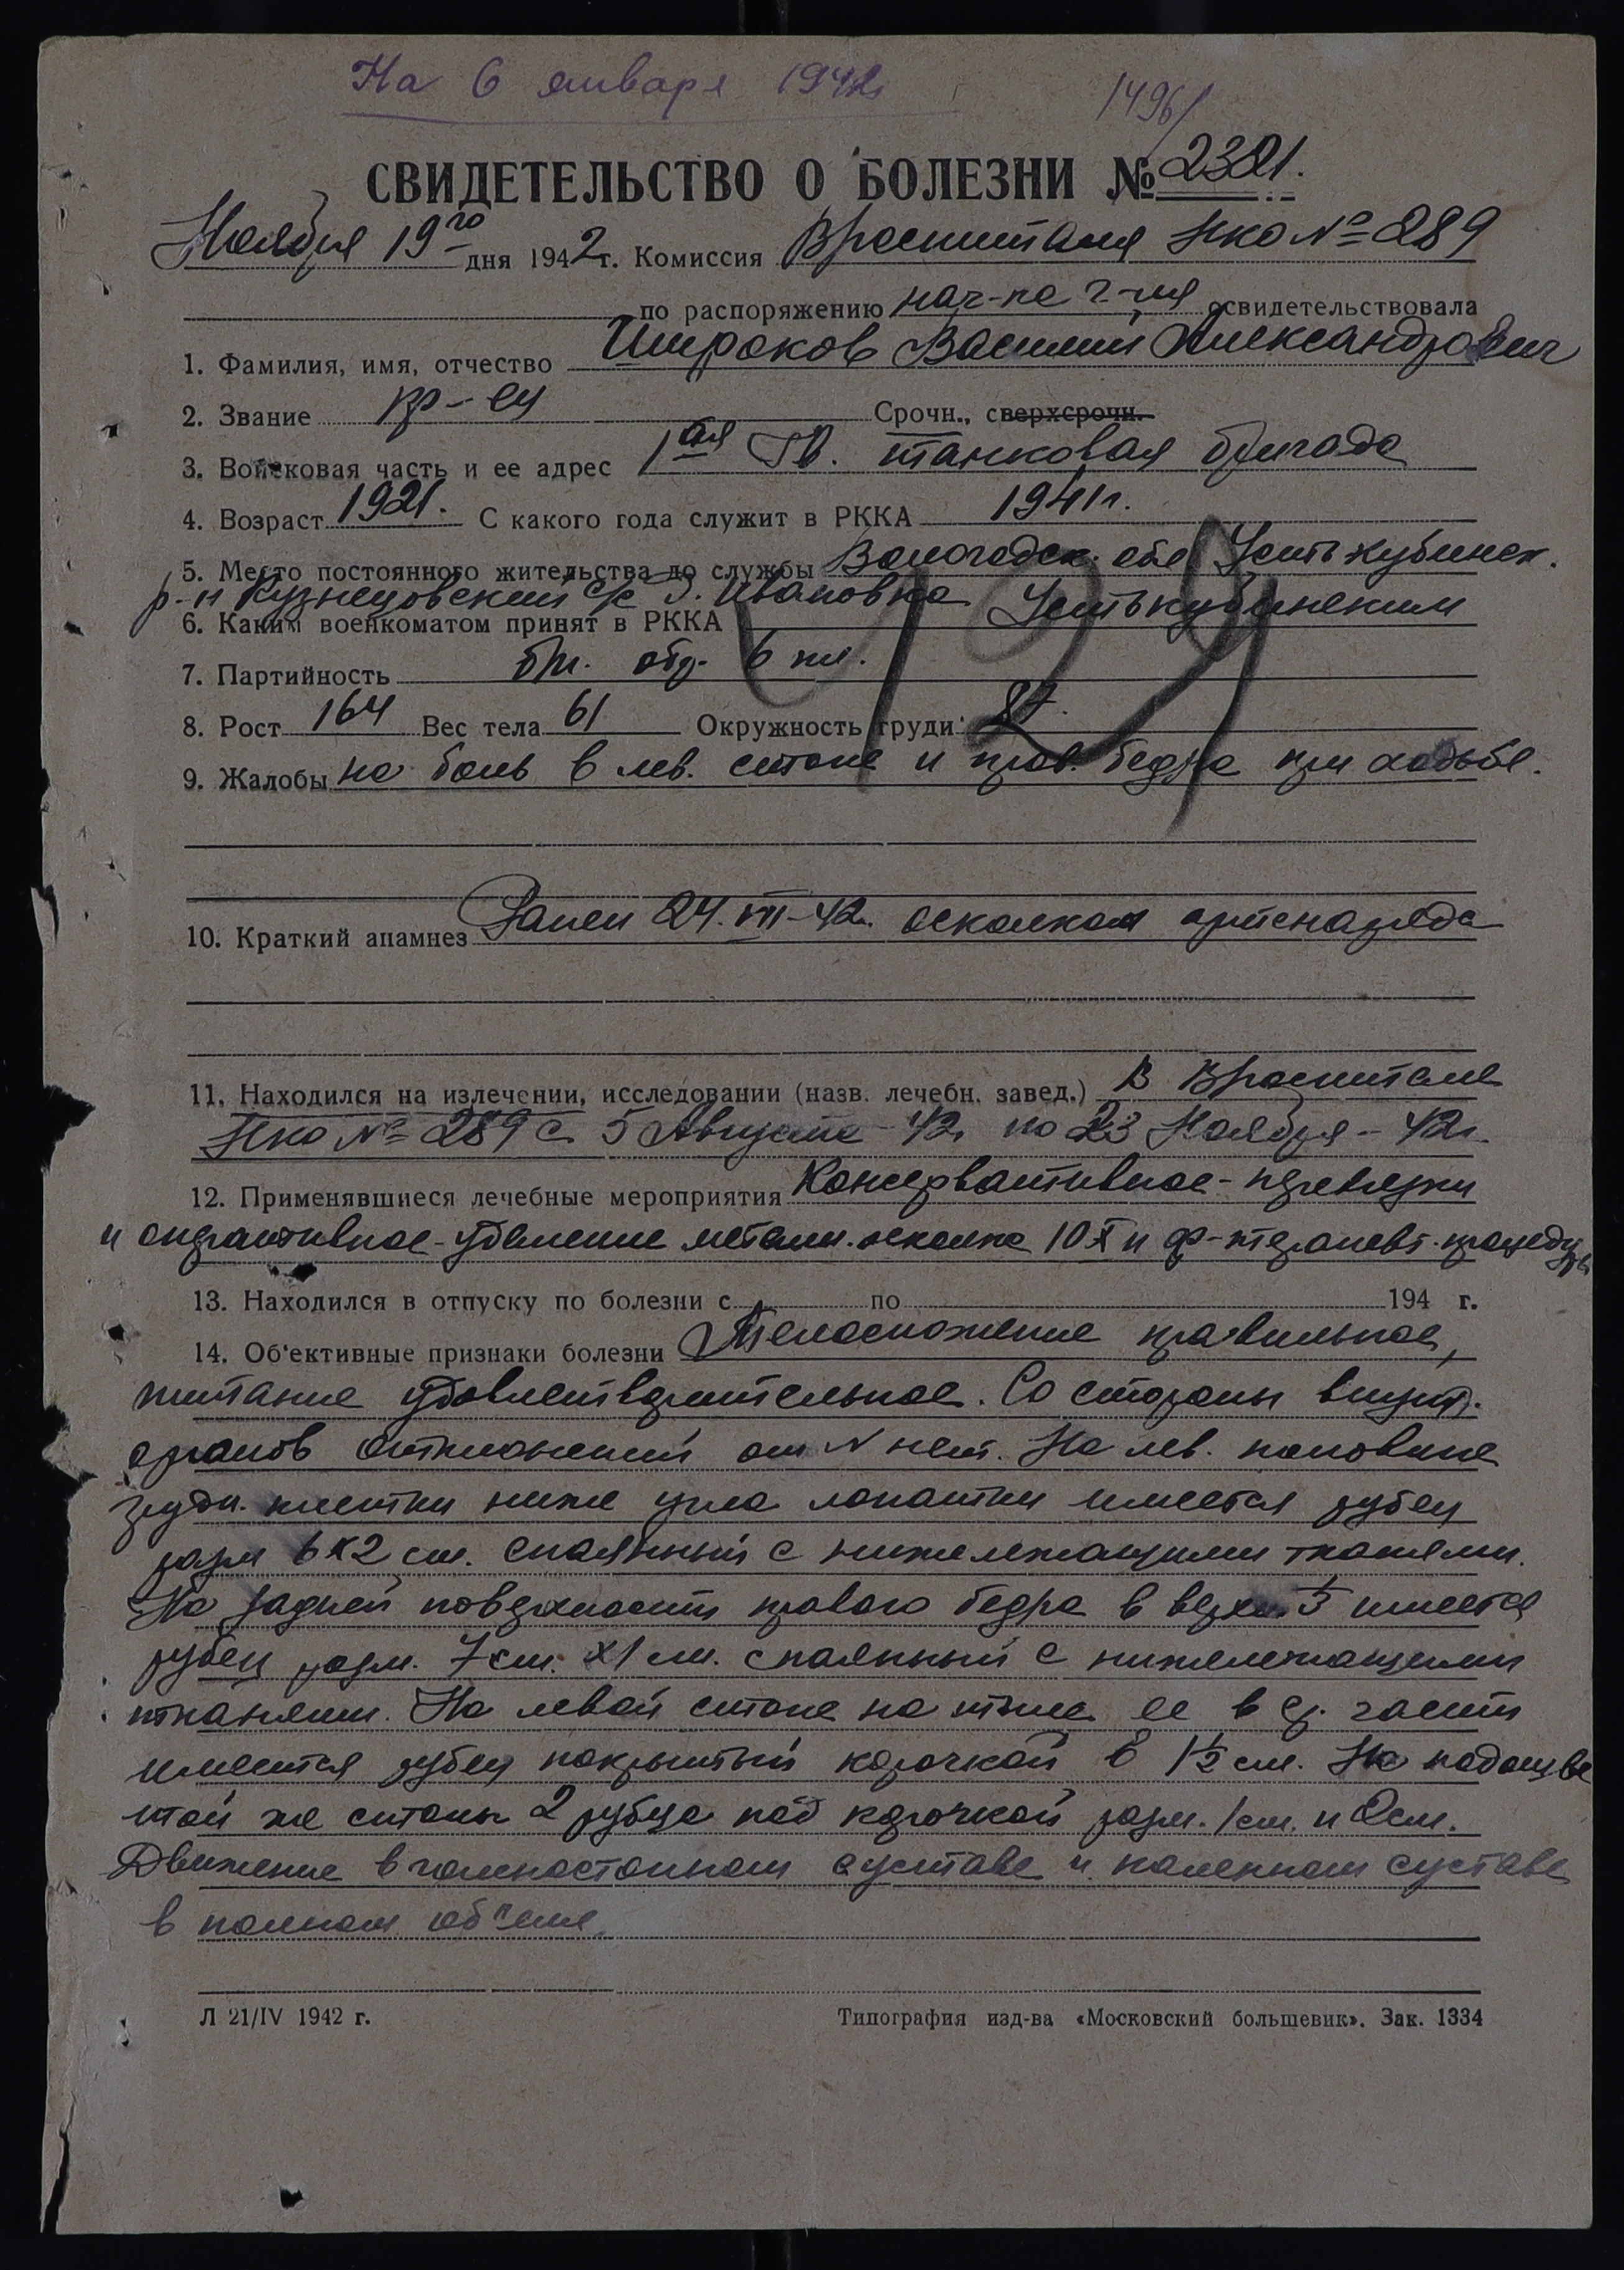 На 6 января 1942
1496/
СВИДЕТЕЛЬСТВО О БОЛЕЗНИ № 2381.
Ноября 19го дня 1942 г. Комиссия Вр госпиталя Нко №289
по распоряжению нач-ка г-ля освидетельствовала
1. Фамилия, имя, отчество Широков Василий Александрович
2. Звание кр-ец Срочн., сверхсрочн.
3. Войсковая часть и ее адрес 1ая Гв. танковая бригада
4. Возраст 1921. С какого года служит в РККА 1941г.
5. Место постоянного жительства до службы Вологодск. обл Усть кубинск.
р-н Кузнецовский с/с д. Ивановка
6. Каким военкоматом принят в РККА Усть кубинским
7. Партийность б/п. обр. 6 кл.
8. Рост 164 Вес тела 61 Окружность груди 87.
9. Жалобы на боль в лев. стопе и прав. бедре при ходьбе.
10. Краткий анамнез Ранен 24.VII-42г. осколком артснаряда
11. Находился на излечении, исследовании (назв. лечебн. завед.) В Вр госпитале
Нко №289 с 5 Августа-42г по 23 Ноября-42г.
12. Применявшиеся лечебные мероприятия Консервативное-перевязки
и оперативное-удаление металл. осколка 10 X и ф-терапевт. процедуры
13. Находился в отпуску по болезни с по 194 г.
14. Об'ективные признаки болезни Телосложение правильное,
питание удовлетворительное. Со стороны внутр.
органов отклонений от N нет. На лев. половине
грудн. клетки ниже угла лопатки имеется рубец
разм 6х2 см. спаянный с нижележащими тканями.
На задней поверхности правого бедра в верхн. 1/3 имеется
рубец разм. 7 см. х1 см. спаянный с нижележащими
тканями. На левой стопе на тыле ее в ср. части
имеется рубец покрытый корочкой в 1 1/2 см. На подошве
той же стопы 2 рубца под корочкой разм. 1см. и 2см.
Движение в голеностопном суставе и коленном суставе
в полном об"еме.
Л 21/IV 1942 г. Типография изд-ва «Московский большевик». Зак. 1334